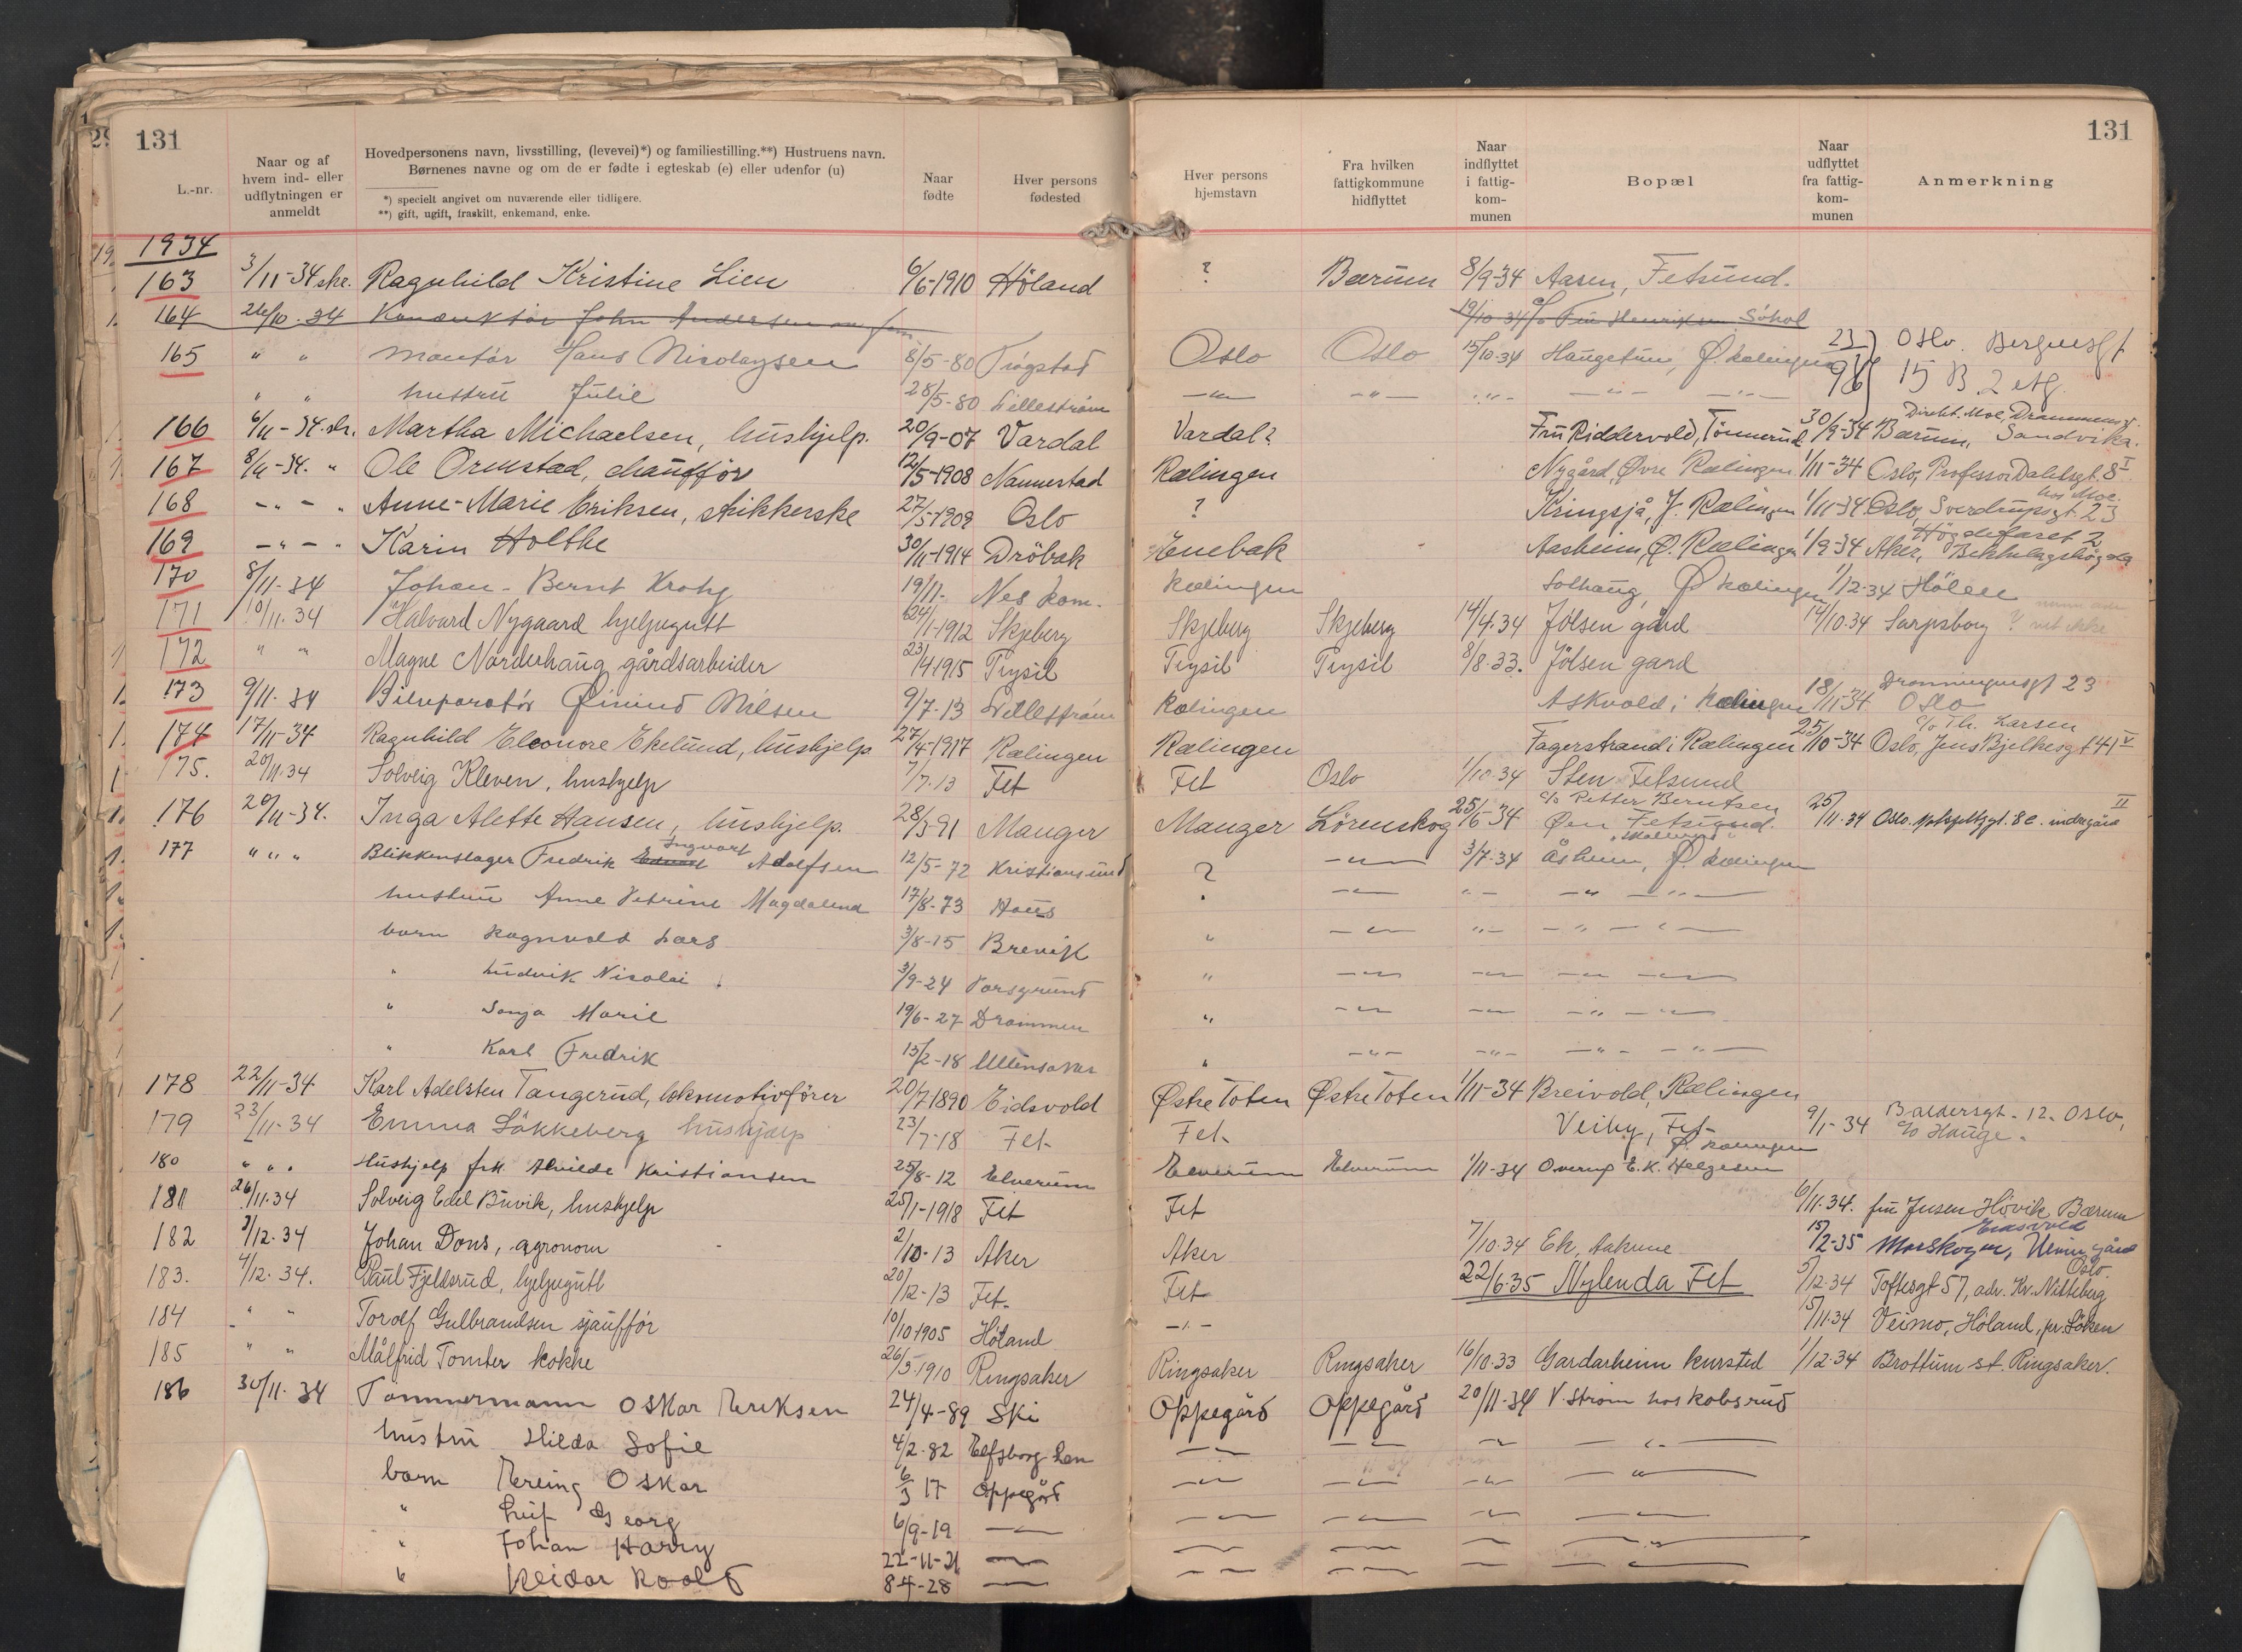 131
131
L.-nr.
Naar og af hvem ind- eller udflytningen er anmeldt
Hovedpersonens navn, livsstilling, (levevei)*) og familiestilling.**) Hustruens navn. Børnenes navne og om de er fødte i egteskab (e) eller udenfor (u)
*) specielt angivet om nuværende eller tidligere.
**) gift, ugift, fraskilt, enkemand, enke.
Naar fødte
Hver persons fødested
Hver persons hjemstavn
Fra hvilken fattigkommune hidflyttet
Naar indflyttet i fattigkommunen
Bopæl
Naar udflyttet fra fattigkommunen
Anmerkning
1934
163 3/11-34 skr. Ragnhild Kristine Lien 6/6-1910 Höland ? Bærum 8/9-34 Aasen, Fetsund.
164 26/10-34 Konduktör John Andersen 19/10-34 c/o Fru Henriksen Söhol
165 " " Montör Hans Nicolaysen 8/5-80 Trögstad Oslo Oslo 15/10-34 Haugetun, Ø. Rælingen Oslo. Bergensgt 15 B 2 etg.
" " hustru Julie 28/5-80 Lilleström -"- -"- -"- -"- -"-
166 6/11-34. skr. Martha Michaelsen, hushjelp. 20/9-07 Vardal Vardal? Fru Riddervold, Tönnerud 30/9-34 Bærum, Sandvika. Direkt. Moe, Drammensv.
167 8/11-34. " Ole Ormstad, chaufför 12/5-1908 Nannestad Rælingen Nygård, Øvre Rælingen 1/11-34 Oslo, Professor Dahlsgt. 8 I
168 -"- " Anne-Marie Eriksen, strikkerske 27/5-1909 Oslo ? Kringsjå, Y. Rælingen 1/11-34 Oslo, Sverdrupsgt. 23 hos Moe.
169 -"- " Karin Holthe 30/11-1914 Dröbak Enebak Aasheim, Ø. Rælingen 1/9-34 Aker, Bekkelagshögda Högdefaret 2
170 8/11-34 Johan-Bernt Krohg 19/11- Nes kom. Rælingen Solhaug, Ø Rælingen 1/12-34 Hölen
171 10/11-34 Halvard Nygaard hjelpegutt 24/1-1912 Skjeberg Skjeberg Skjeberg 14/4.34 Jölsen gård 14/10.34 Sarpsborg ?
172 " " Magne Nordenhaug gårdsarbeider 23/4 1915 Trysil Trysil Trysil 8/8.33. Jölsen gard
173 9/11-34 Bilreparatör Øivind Nilsen 9/7-13 Lilleström Rælingen Askvold i Rælingen 18/11-34 Oslo Dronningensgt 23
174 17/11-34 Ragnhild Eleonore Ekelund, hushjelp 27/4-1917 Rælingen Rælingen Fagerstrand i Rælingen 25/10-34 Oslo, Jens Bjelkesgt 41 V c/o Th. Larsen
175. 20/11.34 Solveig Kleven, hushjelp 7/7.13 Fet Fet Oslo 1/10-34 Sten Fetsund
176 20/11-34. Inga Alette Hansen, hushjelp. 28/3-91 Manger Manger Lörenskog 25/6-34 c/o Petter Berntsen Øen Fetsund. 25/11.34 Oslo.
177 " " " Blikkenslager Fredrik Ingvart Adolfsen 12/5-72 Kristiansund ? -"- 3/7-34 Åsheim, Ø. Rælingen
hustru Anne Petrine Magdalena 17/8-73 Haus " -"- "- -"- -"-
barn Ragnvald Lars 3/8-15 Brevik " -"- "- -"-
" Ludvik Nicolai 3/9-24 Porsgrund " -"- -"- -"-
" Sonja Marie 19/6-27 Drammen " -"- -"- -"-
" Karl Fredrik 13/2-18 Ullensaker " -"- -"- -"- -"-
178 22/11-34 Karl Adelsten Tangerud, lokomotivförer 20/7 1890 Eidsvold Østre Toten Østre Toten 1/11-34 Breivold, Rælingen
179 23/11-34 Emma Løkkeberg hushjælp 23/7-18 Fet- Fet- Veiby, Fet- 9/1-34 Baldersgt-12. Oslo, c/o Hauge.
180 " " " Hushjelp frk. Alvilde Kristiansen 25/8-12 Elverum Elverum Elverum 1/11-34 Overng E.K. Helgesen Ø. Rælingen
181 26/11.34 Solveig Edel Buvik, hushjelp 25/1-1918 Fet Fet 6/11.34. fru Jensen Hövik Bærum
182 1/12.34 Johan Dons, agronom 2/10-13 Aker Aker 7/10.34 Ek, Dakune 15/2-35 Morskogen, gård Eidsvold
183. 4/12.34. Paul Fjeldsrud, hjelpegutt 20/12-13 Fet- Fet 22/6.35 Nylenda Fet 5/12.34 Toftesgt 57, adr. Kr. Nitteberg Oslo.
184 " " Torolf Gulbrandsen sjauffør 10/10 1905 Höland -"- 15/11.34 Veimo, Höland, pr. Löken
185 " " Målfrid Tomter kokke 26/5-1910 Ringsaker Ringsaker Ringsaker 16/10.33 Gardarheim kursted 1/12.34 Brottum st. Ringsaker.
186 30/11.34 Tömmermann Oskar Eriksen 24/4-89 Ski Oppegård Oppegård 20/11-34 V. Ström hos Kolsrud
hustru Hilda Sofie 4/2-82 Elfsborg Len -"- -"- -"- -"-
barn Erling Oskar 6/3 17 Oppegård -"- -"- -"- -"-
" Leif Georg 6/9-19 -"- -"- -"- -"- -"-
" Johan Harry 22-11-21 -"- -"- -"- -"- -"-
" Reidar Roald 8-4-28 -"- -"- -"- -"- -"-